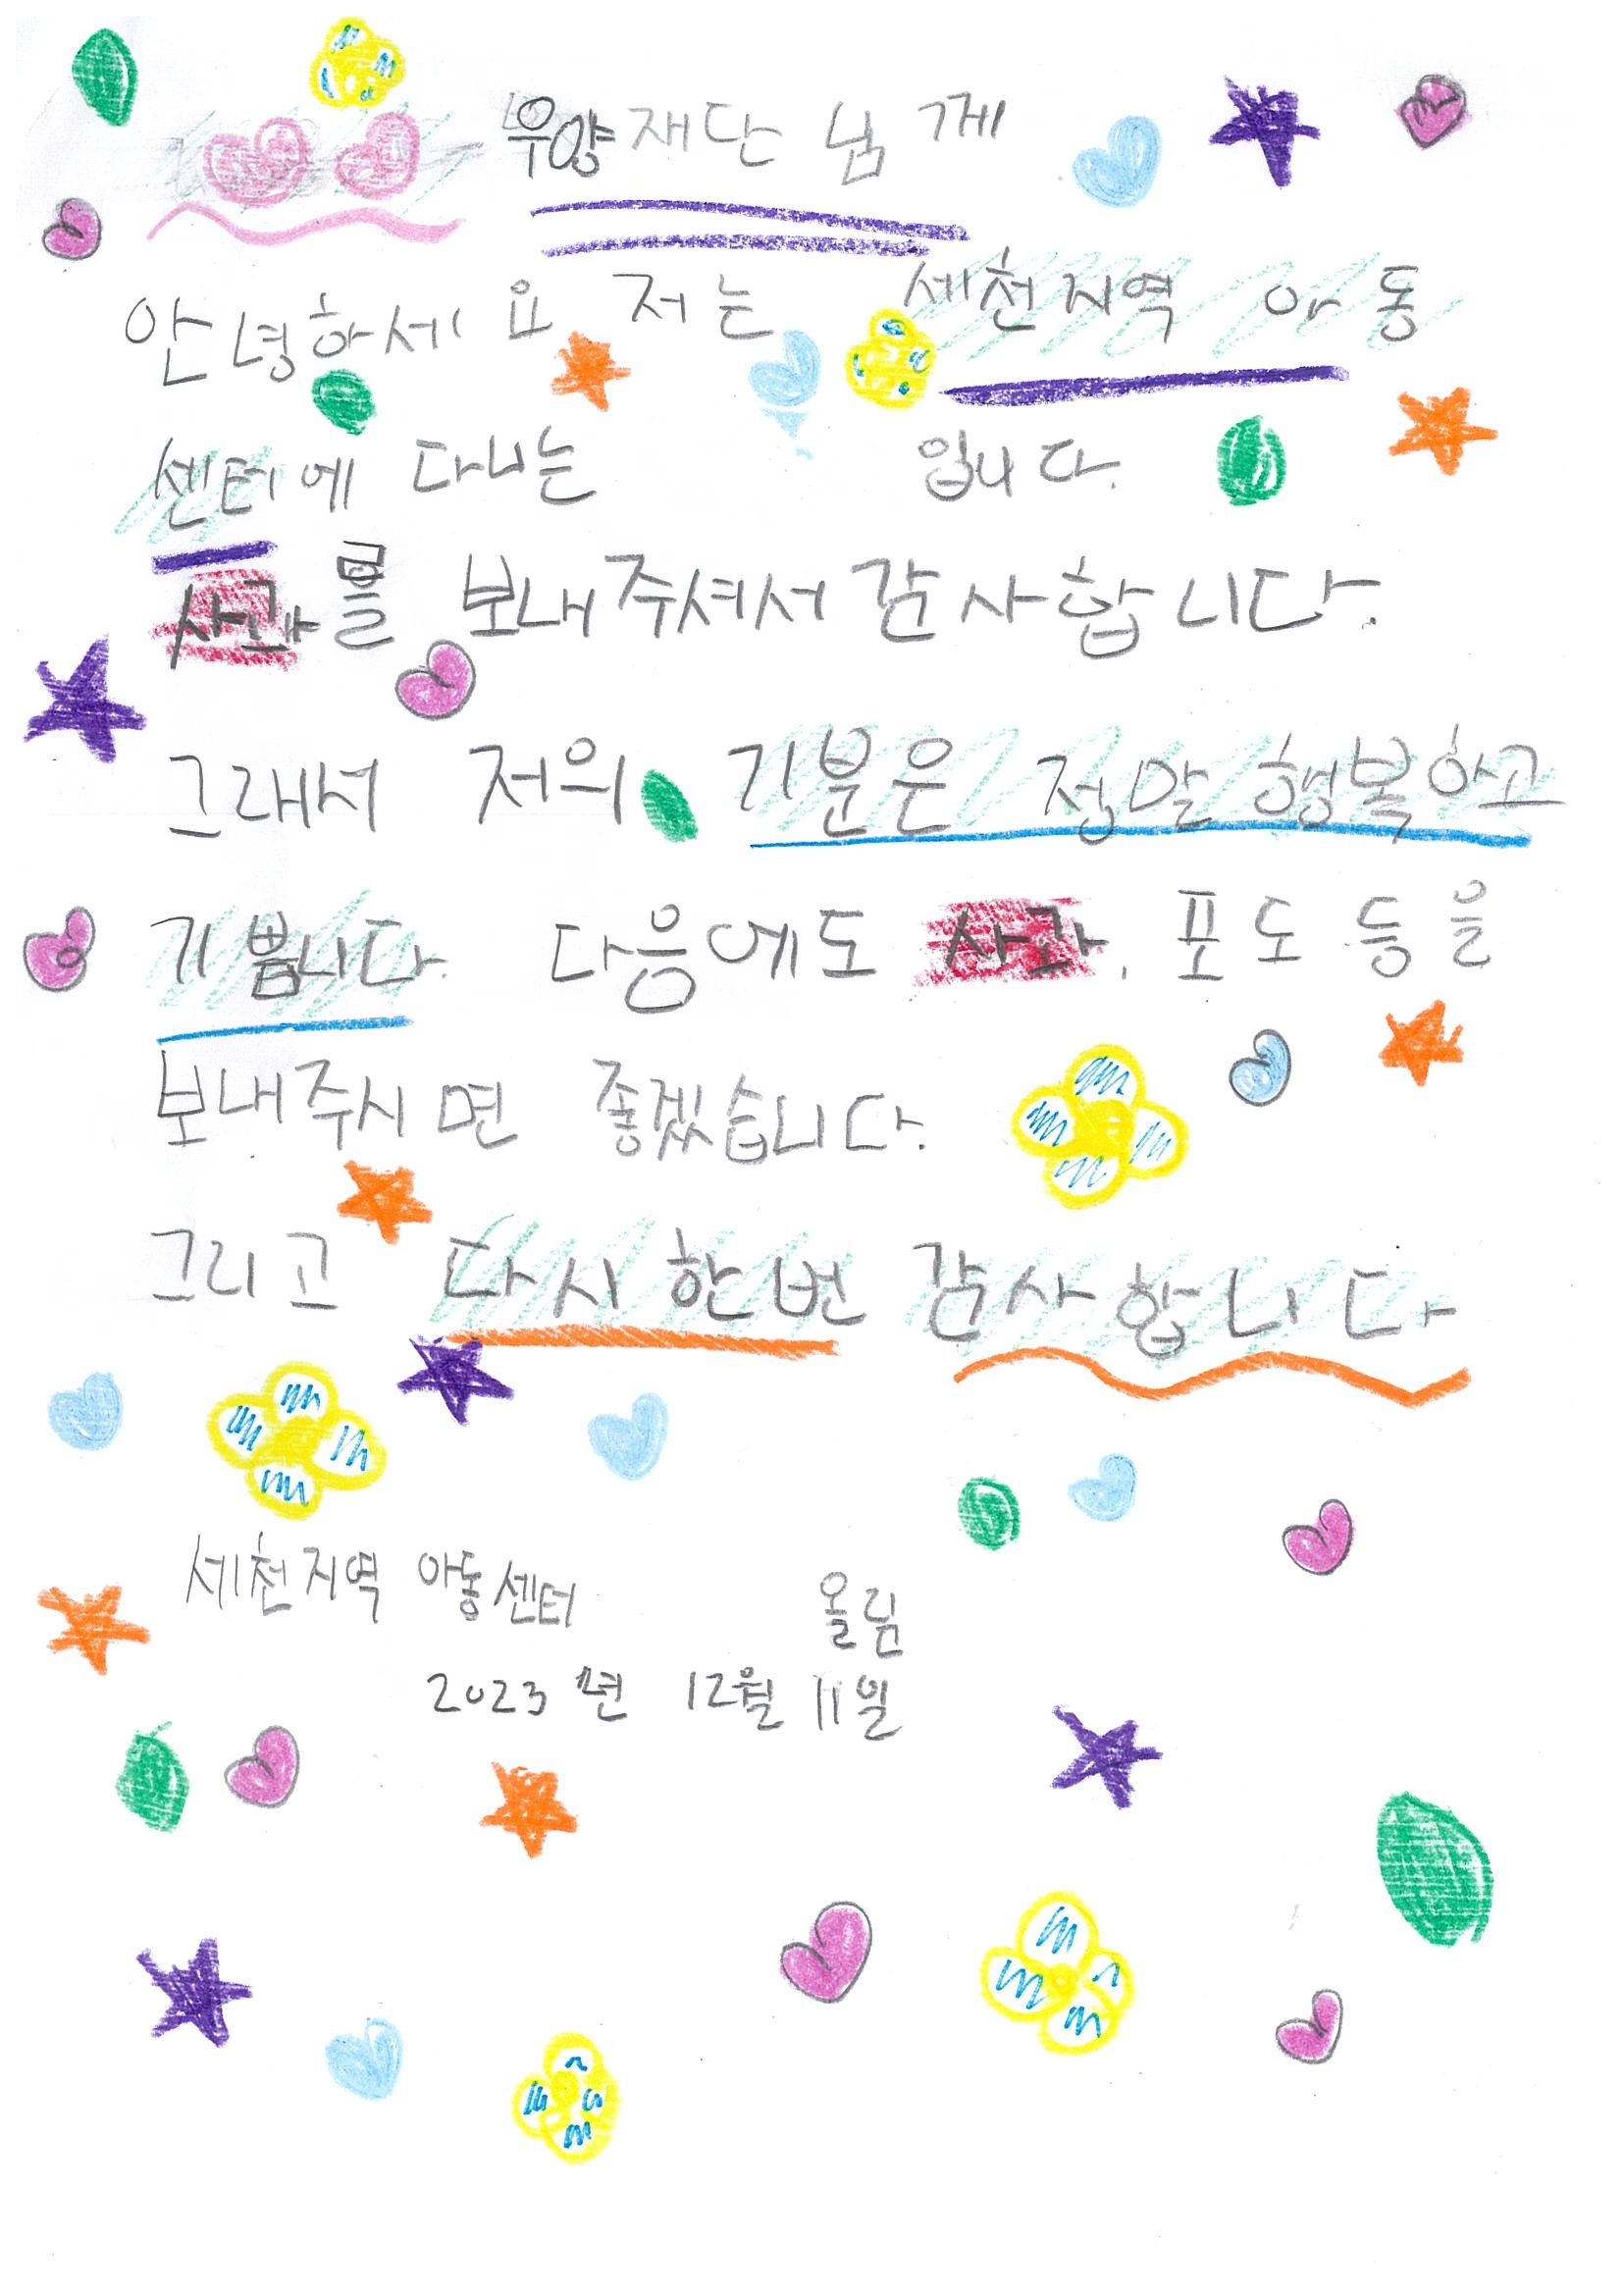 우양재단 님 께
안녕하세요 저는 세천지역 아동
센터에 다니는 입니다.
사과를 보내주셔서 감사합니다.
그래서 저의 기분은 정말 행복하고
기쁩니다. 다음에도 사과, 포도 등을
보내주시면 좋겠습니다.
그리고 다시 한번 감사합니다
세천지역 아동센터 올림
2023년 12월 11일